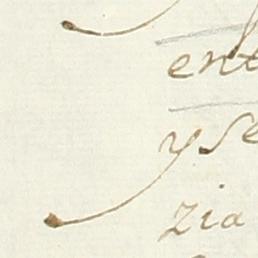 ent
y se
zia